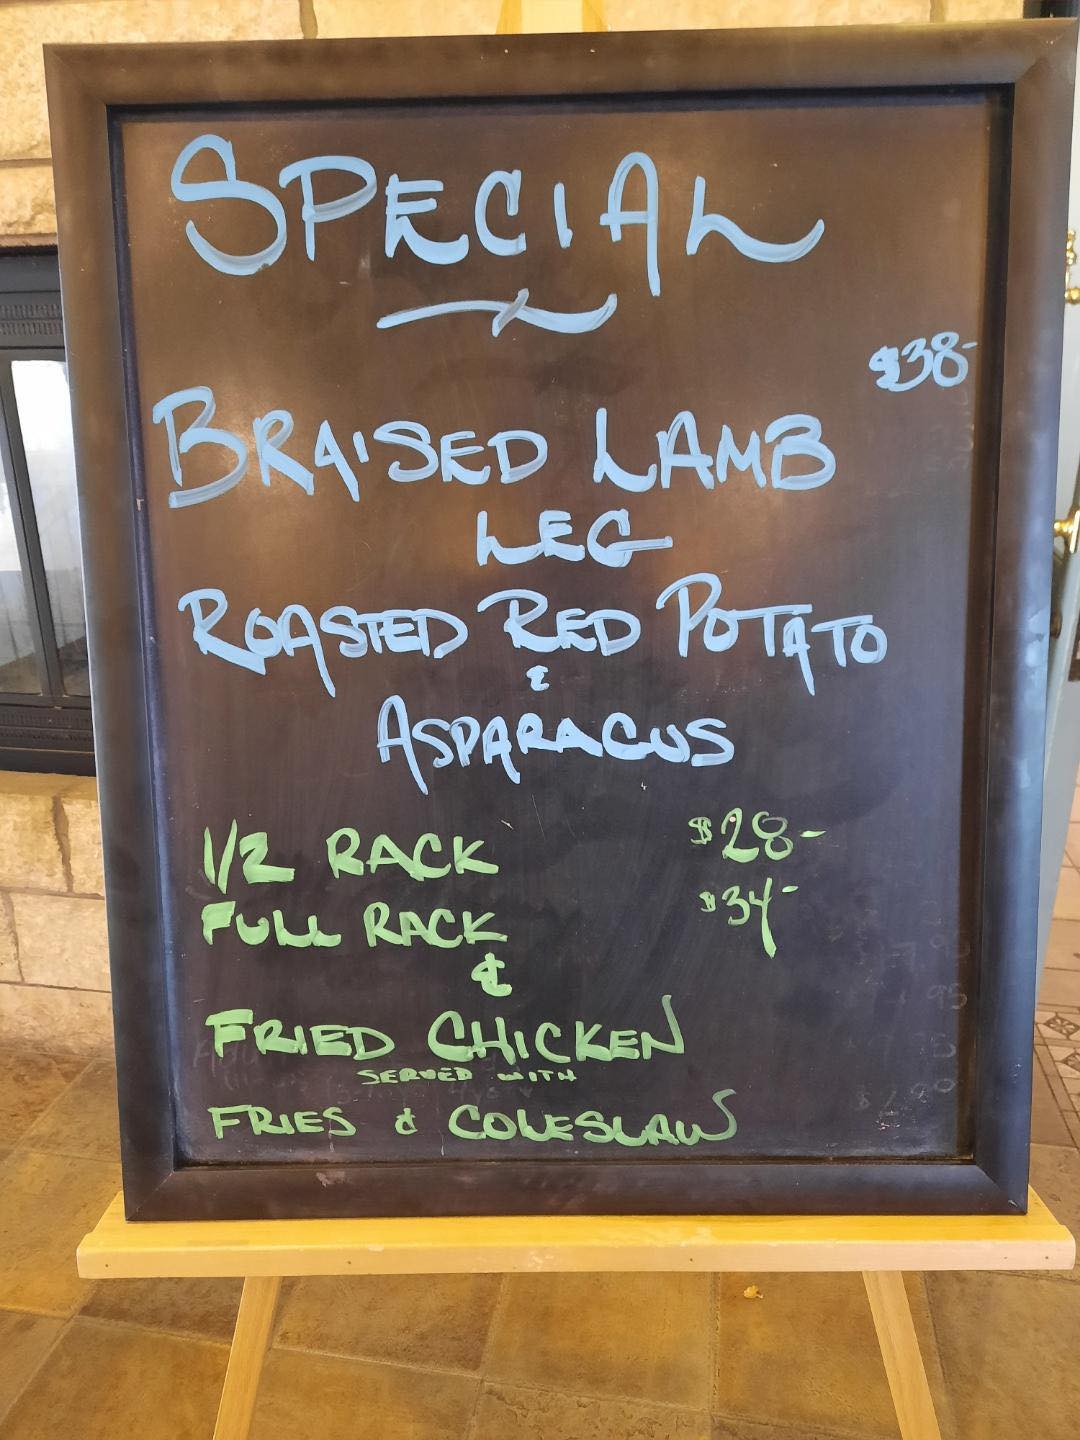 SPECIAL
$38-
BRAISED LAMB
LEG
ROASTED RED POTATO
&
ASPARAGUS
1/2 RACK $28-
FULL RACK $34-
&
FRIED CHICKEN
SERVED WITH
FRIES & COLESLAW